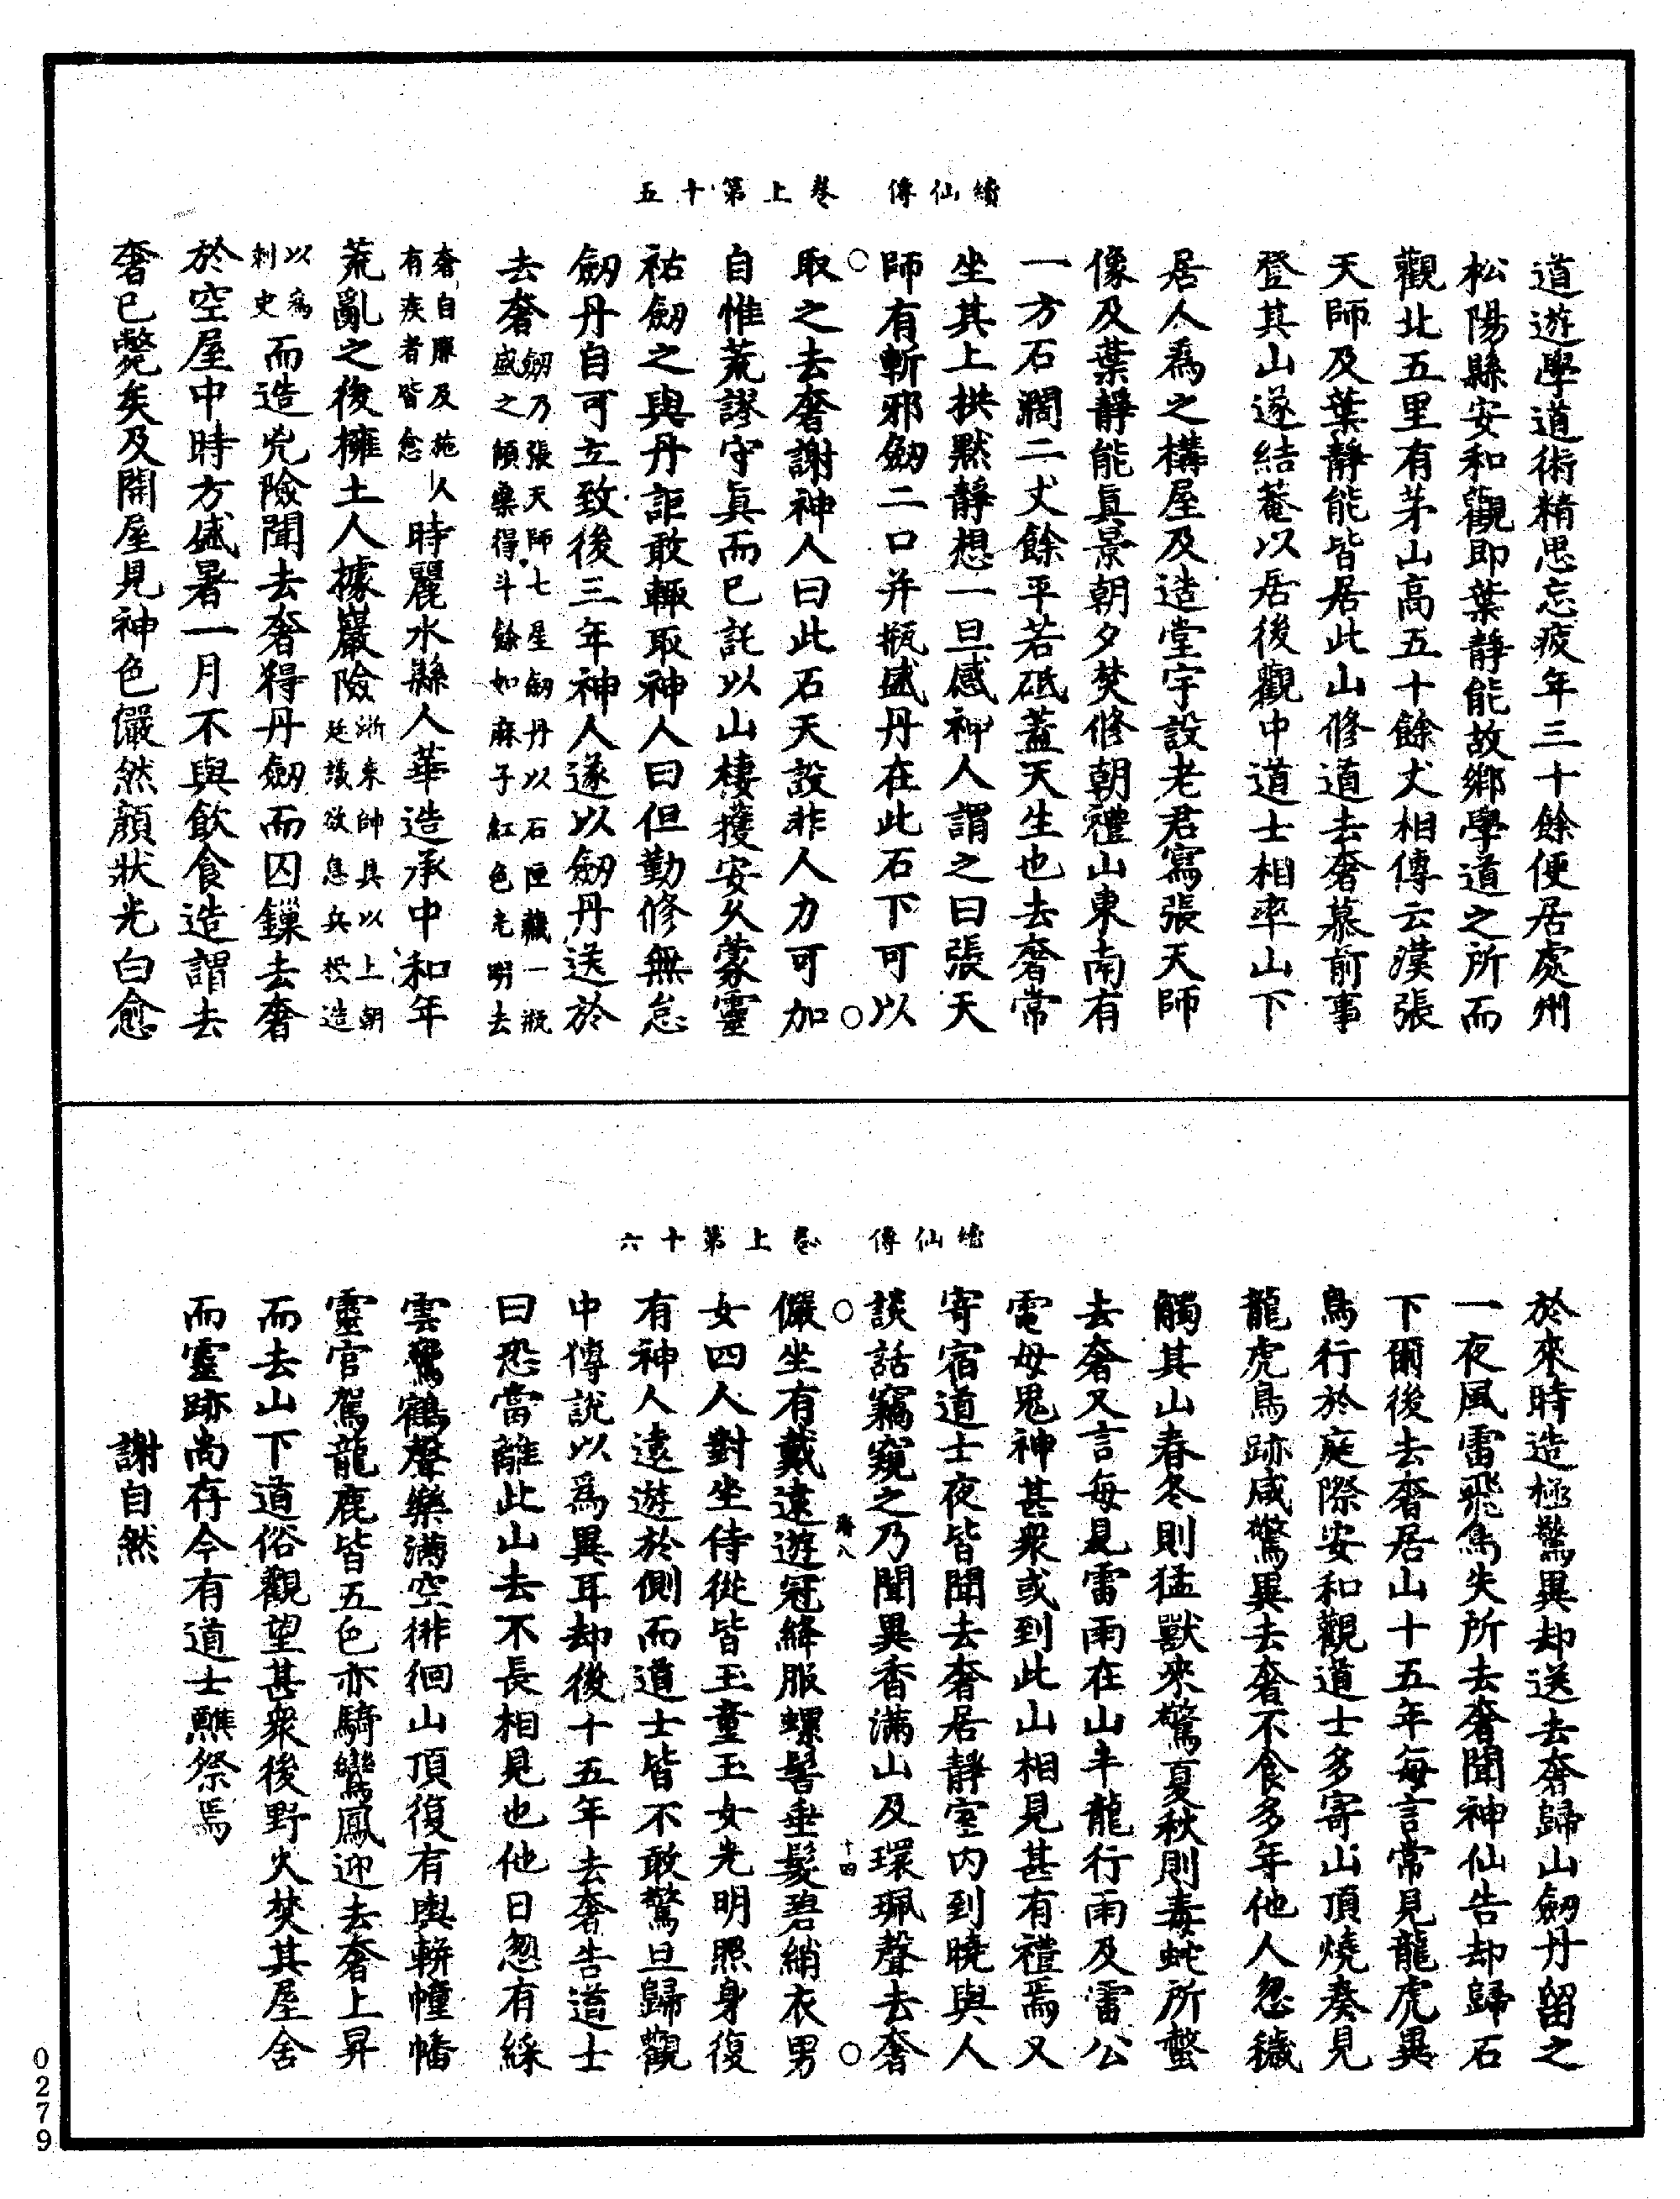 續仙傳 卷上第十五
道遊學道術精思忘疲年三十餘便居處州
松陽縣安和觀即葉靜能故鄉學道之所而
觀北五里有茅山高五十餘丈相傳云漢張
天師及葉靜能皆居此山修道去奢慕前事
登其山遂結菴以居後觀中道士相率山下
居人爲之構屋及造堂宇設老君寫張天師
像及葉靜能真景朝夕焚修朝禮山東南有
一方石濶二丈餘平若砥蓋天生也去奢常
坐其上拱默靜想一旦感神人謂之曰張天
師有斬邪劒二口并瓶盛丹在此石下可以
取之去奢謝神人曰此石天設非人力可加
自惟荒謬守真而已託以山棲獲安久蒙靈
祐劒之與丹詎敢輒取神人曰但勤修無怠
劒丹自可立致後三年神人遂以劒丹送於
去奢劒乃張天師七星劒丹以石匣藏一瓶
盛之傾藥得斗餘如麻子紅色光明去
奢自服及施人
有疾者皆愈時麗水縣人華造承中和年
荒亂之後擁土人據巖險浙東帥具以上朝
廷議欲息兵授造
以爲
刺史而造兇險聞去奢得丹劒而囚鏁去奢
於空屋中時方盛暑一月不與飲食造謂去
奢已斃矣及開屋見神色儼然顏狀光白愈
續仙傳 卷上第十六
於來時造極驚異却送去奢歸山劒丹留之
一夜風雷飛馬失所去奢聞神仙告却歸石
下爾後去奢居山十五年每言常見龍虎異
鳥行於庭際安和觀道士多寄山頂燒奏見
龍虎鳥跡咸驚異去奢不食多年他人忽穢
觸其山春冬則猛獸來驚夏秋則毒蛇所螫
去奢又言每見雷雨在山半龍行雨及雷公
電母鬼神甚衆或到此山相見甚有禮焉又
寄宿道士夜皆聞去奢居靜室內到曉與人
談話竊窺之乃聞異香滿山及環珮聲去奢
儼坐有戴遠遊冠絳服螺髻垂髮碧綃衣男
女四人對坐侍從皆玉童玉女光明照身復
有神人遠遊於側而道士皆不敢驚旦歸觀
中傳說以爲異耳却後十五年去奢告道士
曰恐當離此山去不長相見也他日忽有綵
雲鸞鶴聲樂滿空徘徊山頂復有輿輧幢幡
靈官駕龍鹿皆五色亦騎鸞鳳迎去奢上昇
而去山下道俗觀望甚衆後野火焚其屋舍
而靈跡尚存今有道士醮祭焉
謝自然
十四
0279